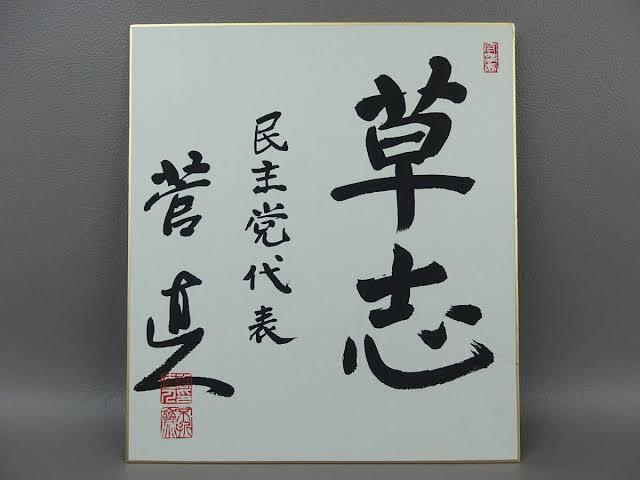 草志
民主党代表
菅直人